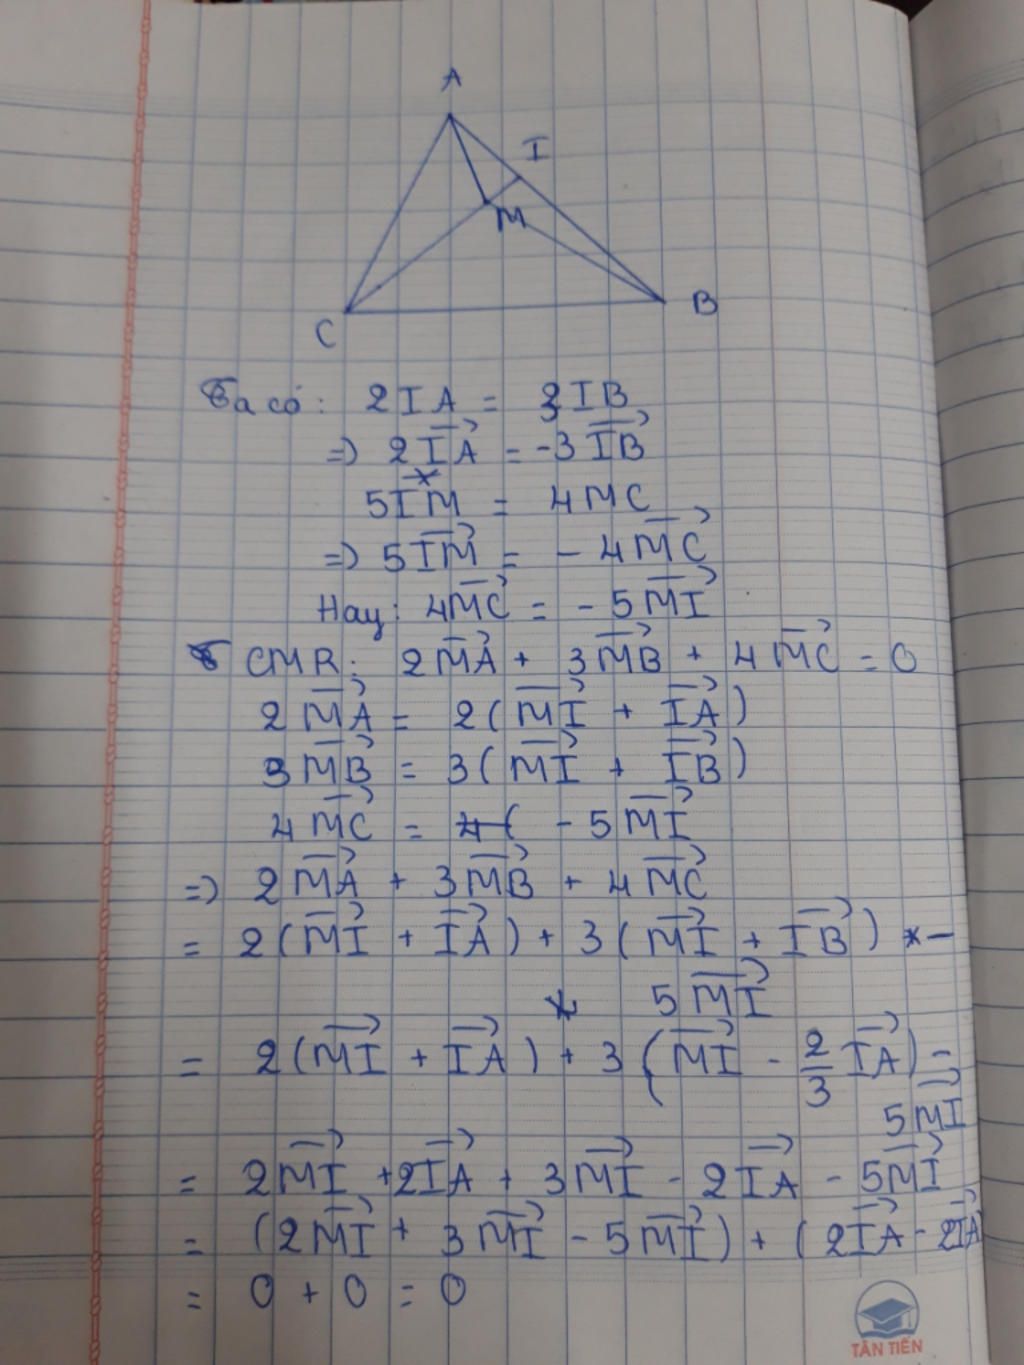 A
I
M
C
B
Ta có: 2IA = 3IB
=> 2\overrightarrow{IA} = -3\overrightarrow{IB}
5IM = 4MC
=> 5\overrightarrow{IM} = -4\overrightarrow{MC}
Hay: 4\overrightarrow{MC} = -5\overrightarrow{MI}
CMR: 2\overrightarrow{MA} + 3\overrightarrow{MB} + 4\overrightarrow{MC} = 0
2\overrightarrow{MA} = 2(\overrightarrow{MI} + \overrightarrow{IA})
3\overrightarrow{MB} = 3(\overrightarrow{MI} + \overrightarrow{IB})
4\overrightarrow{MC} = -5\overrightarrow{MI}
=> 2\overrightarrow{MA} + 3\overrightarrow{MB} + 4\overrightarrow{MC}
= 2(\overrightarrow{MI} + \overrightarrow{IA}) + 3(\overrightarrow{MI} + \overrightarrow{IB}) -
5\overrightarrow{MI}
= 2(\overrightarrow{MI} + \overrightarrow{IA}) + 3(\overrightarrow{MI} - \frac{2}{3}\overrightarrow{IA}) -
5\overrightarrow{MI}
= 2\overrightarrow{MI} + 2\overrightarrow{IA} + 3\overrightarrow{MI} - 2\overrightarrow{IA} - 5\overrightarrow{MI}
= (2\overrightarrow{MI} + 3\overrightarrow{MI} - 5\overrightarrow{MI}) + (2\overrightarrow{IA} - 2\overrightarrow{IA})
= 0 + 0 = 0
TÂN TIẾN